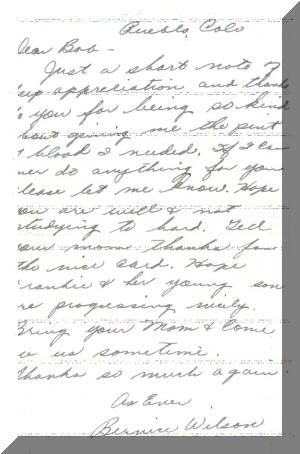 Pueblo, Colo
Dear Bob -
Just a short note of
my appreciation and thanks
to you for being so kind
about giving me the pint
of blood I needed. If I can
ever do anything for you
please let me know. Hope
you are well & not
studying to hard. Tell
your mom thanks for
the nice card. Hope
Frankie & her young son
are progressing nicely.
Bring your Mom & Come
see us sometime.
Thanks so much again
As Ever
Bernice Wilson